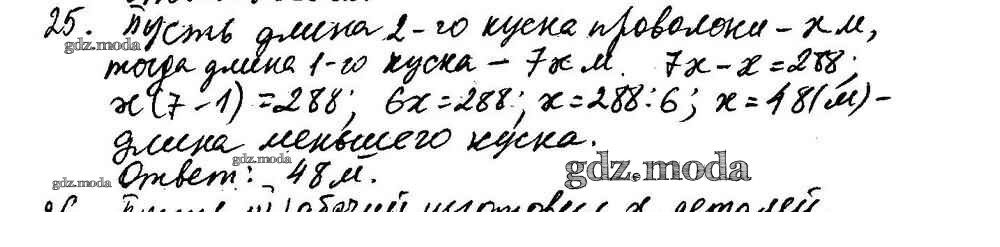 25. Пусть длина 2-го куска проволоки – x м,
gdz.moda
тогда длина 1-го куска – 7x м. 7x – x = 288;
x(7 – 1) = 288; 6x = 288; x = 288 : 6; x = 48 (м) –
длина меньшего куска.
gdz.moda
gdz.moda
Ответ: 48 м.
gdz.moda
26. Пусть рабочий изготовил x деталей